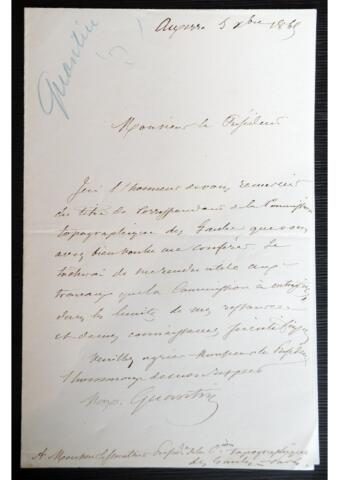 Quantin
Auxerre 5 xbre 1865
Monsieur le Président
J'ai l'honneur de vous remercier
du titre de Correspondant de la Commission
topographique des Gaules que vous
avez bien voulu me conférer. Je
tâcherai de me rendre utile aux
travaux que la Commission a
dans la limite de mes
et de mes connaissances scientifiques
Veuillez agréer Monsieur le Président
l'hommage de mon respect
Quantin
A Monsieur le Sénateur Présid. de la Con topographique
des Gaules